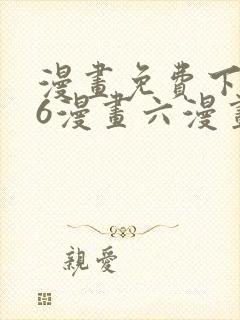 漫畫免費下
6漫畫六漫畫
親愛